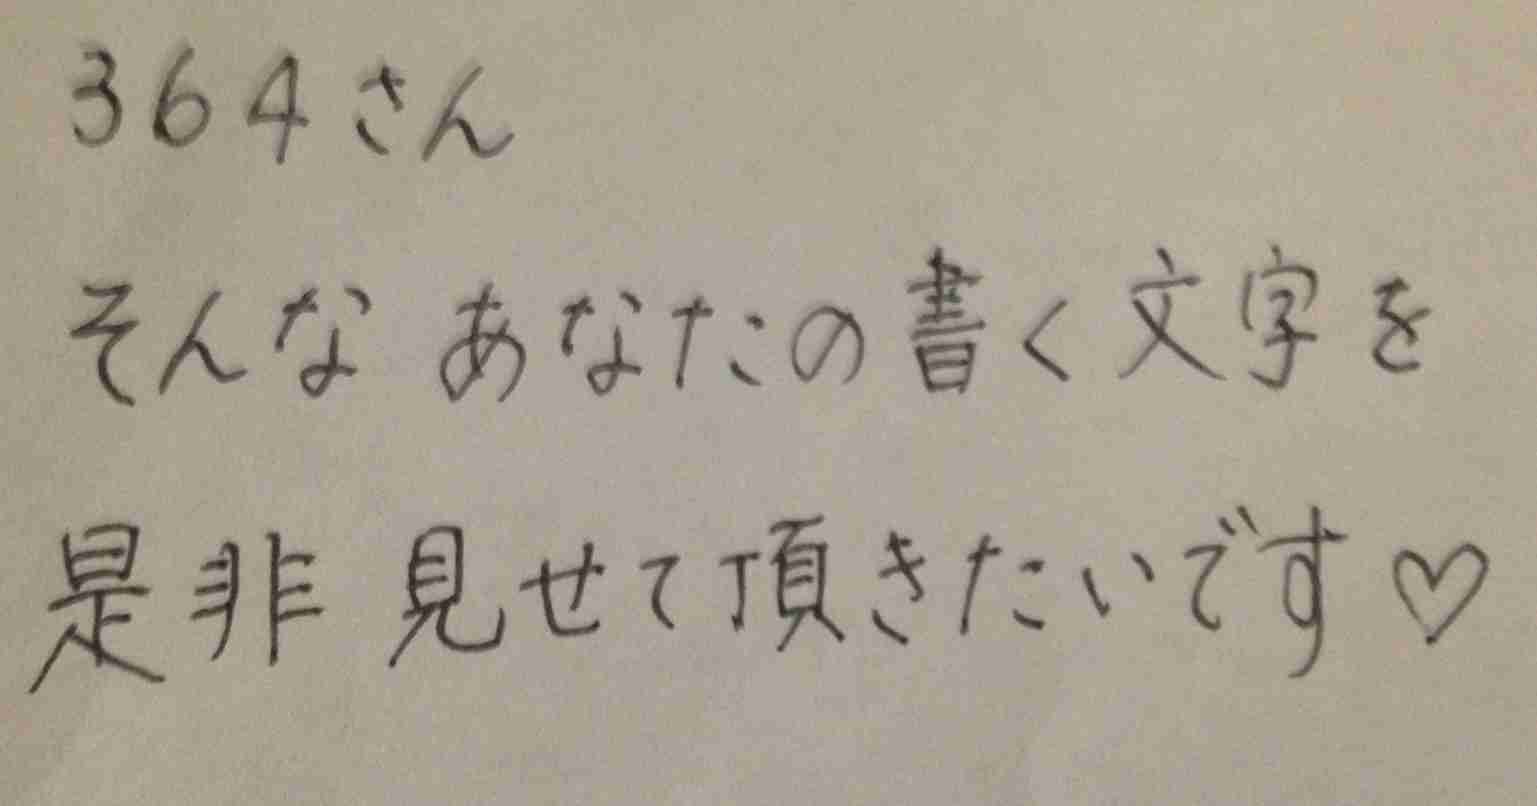 364さん
そんな あなたの書く文字を
是非 見せて頂きたいです♡